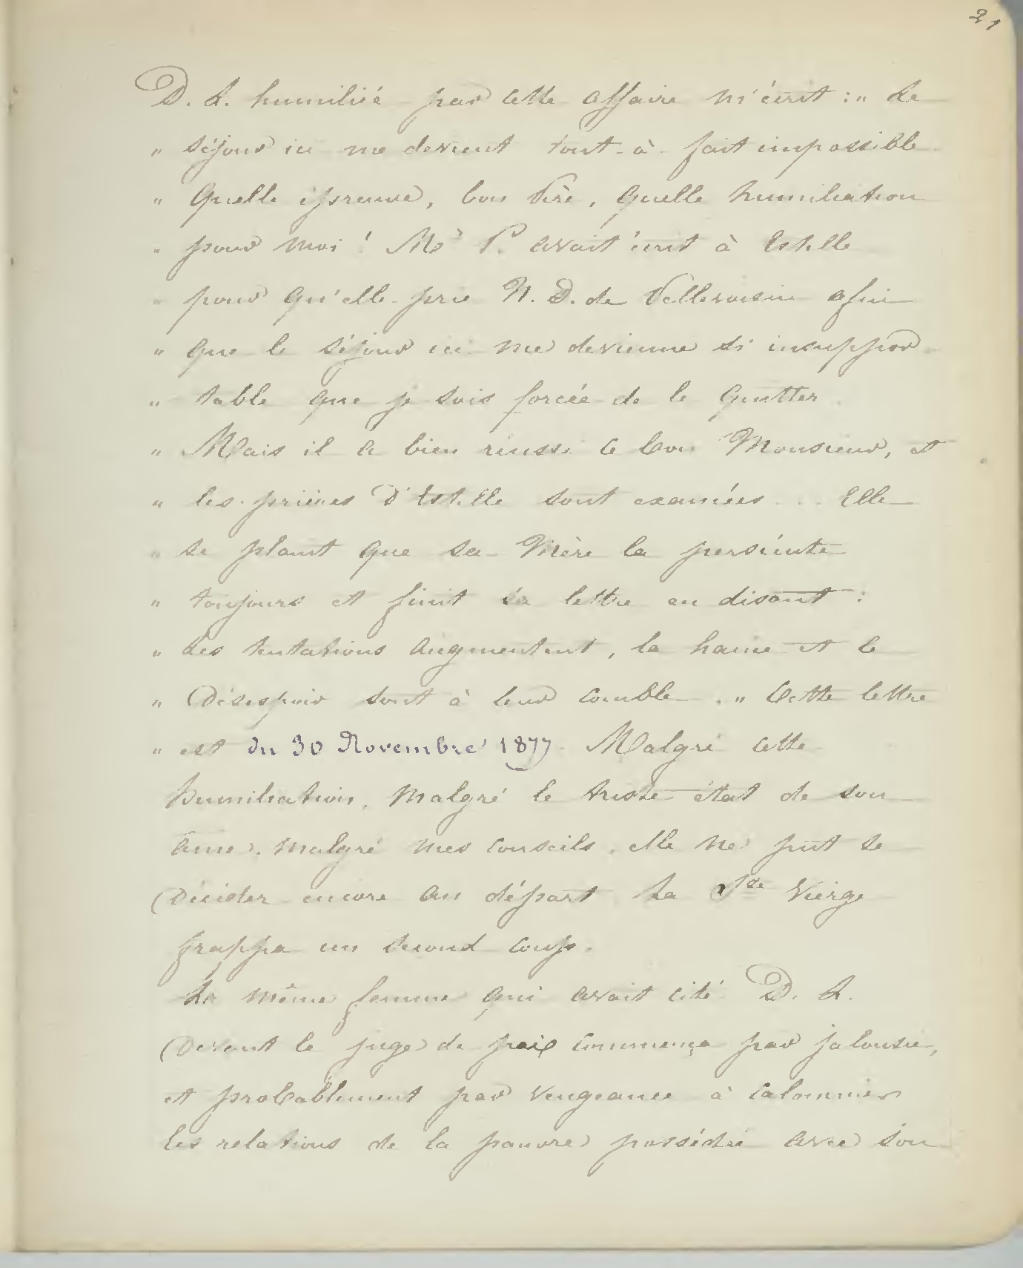 21
D. L. humiliée par cette affaire m'écrit : „ Le
„ séjour ici me devient tout-à-fait impossible
„ Quelle épreuve, bon Père, quelle humiliation
„ pour moi ! Mr P. avait écrit à Estelle
„ pour qu'elle prie N. D. de Pellevoisin afin
„ que le séjour ici me devienne si insuppor
„ table que je sois forcée de le quitter.
„ Mais il a bien réussi ce bon Monsieur, et
„ les prières d'Estelle sont exaucées ... Elle
„ se plaint que sa Mère la persécute
„ toujours et finit sa lettre en disant :
„ Les tentations augmentent, la haine et le
„ Désespoir sont à leur comble . „ Cette lettre
„ est du 30 Novembre 1877. Malgré cette
humiliation, malgré le triste état de son
âme, malgré mes conseils, elle ne put se
Décider encore au départ. La Ste Vierge
frappa un second coup.
La même femme qui avait cité D. L.
Devant le juge de paix commença par jalousie,
et probablement par vengeance à calomnier
les relations de la pauvre possédée avec son